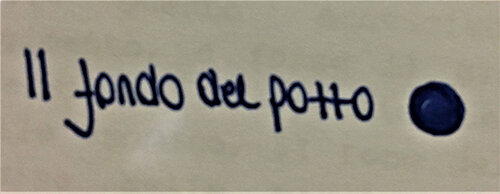 Il fondo del potto